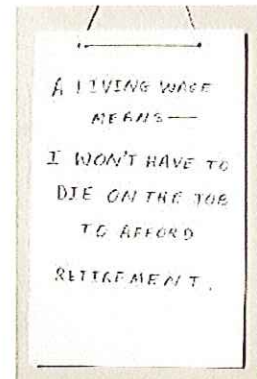 A LIVING WAGE
MEANS—
I WON'T HAVE TO
DIE ON THE JOB
TO AFFORD
RETIREMENT.